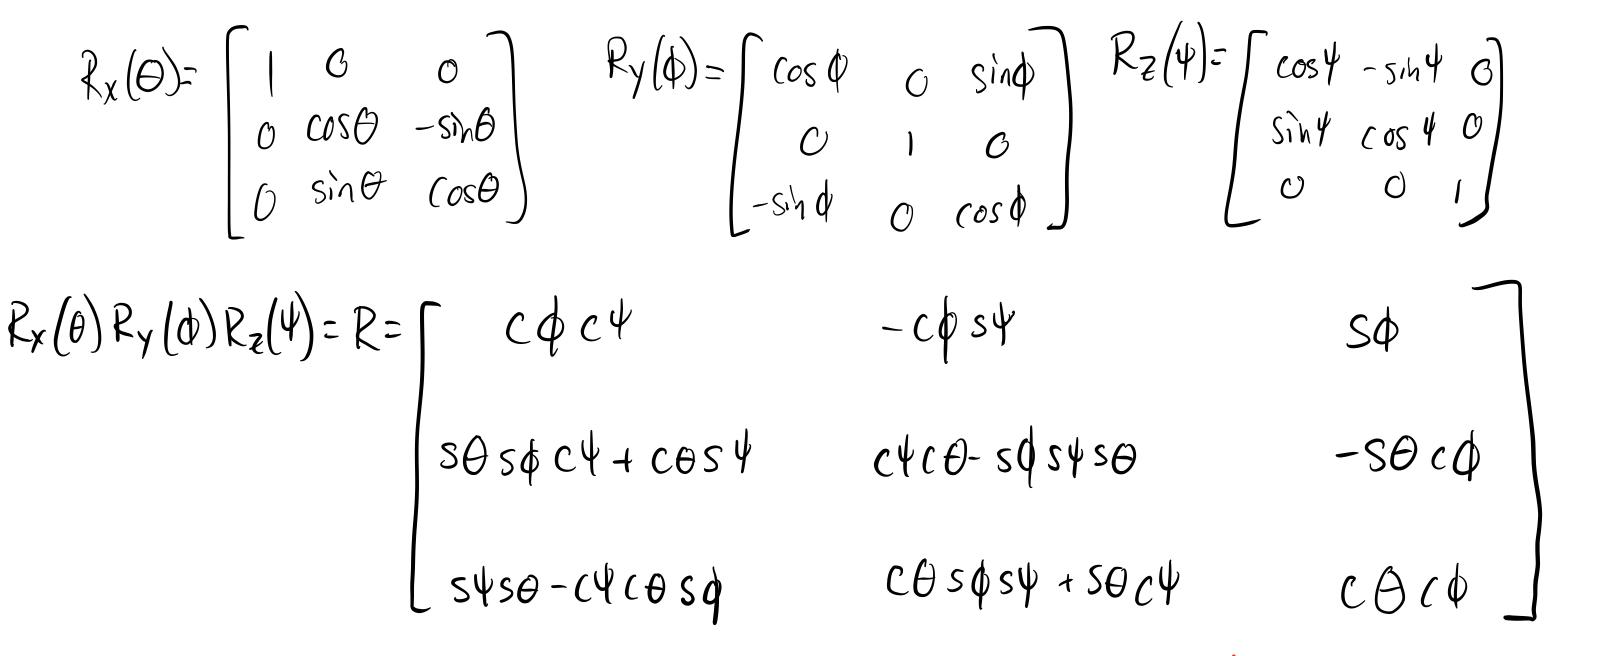 Rx(θ)= [1 0 0; 0 cosθ -sinθ; 0 sinθ cosθ] Ry(ϕ)= [cosϕ 0 sinϕ; 0 1 0; -sinϕ 0 cosϕ] Rz(ψ)= [cosψ -sinψ 0; sinψ cosψ 0; 0 0 1]
Rx(θ)Ry(ϕ)Rz(ψ)=R= [cϕcψ -cϕsψ sϕ
sθsϕcψ+cθsψ cψcθ-sϕsψsθ -sθcϕ
sψsθ-cψcθsϕ cθsϕsψ+sθcψ cθcϕ]